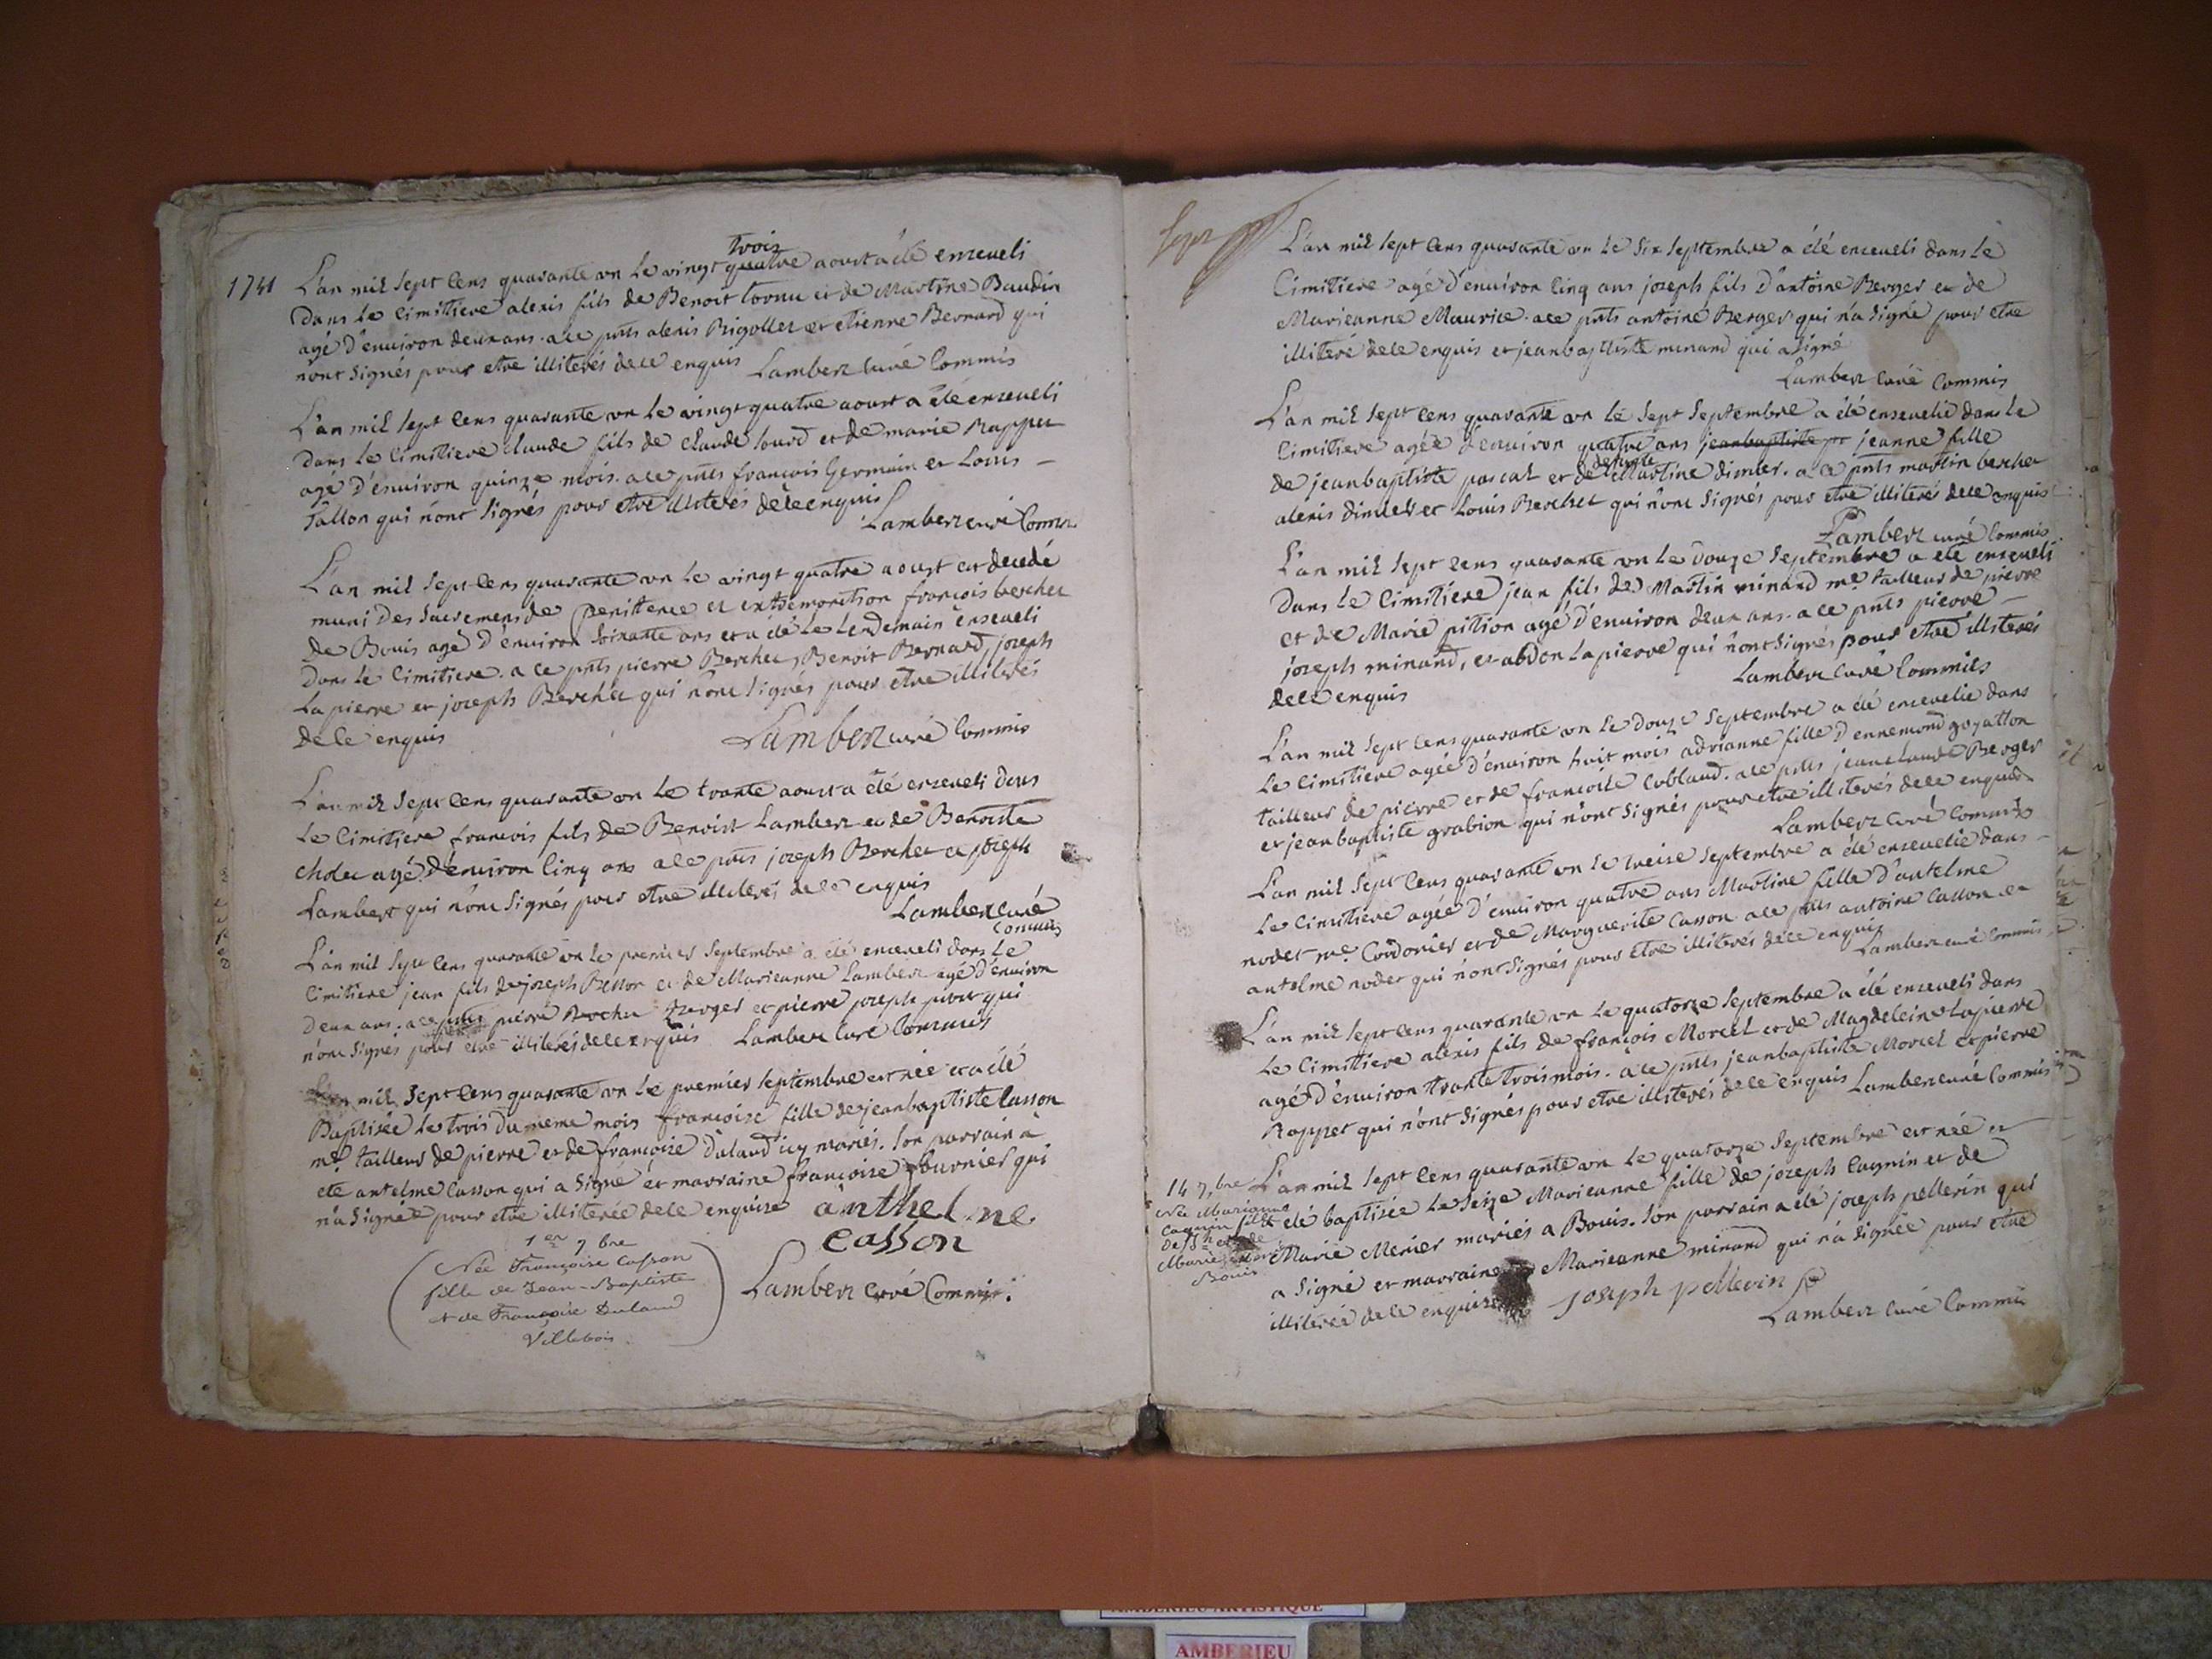 1741
L'an mil sept cens quarante un le vingt quatre trois aoust a été enseueli
dans le cimitiere alexis fils de Benoit tornu et de Martine Baudin
agé d'enuiron deux ans. a ce pnts alexis Rigollet et etienne Bernard qui
n'ont signés pour etre illiterés de ce enquis Lambert curé commis
L'an mil sept cens quarante un le vingt quatre aoust a été enseueli
dans le cimitiere claude fils de claude sourd et de marie Rappet
agé d'enuiron quinze mois. a ce pnts francois Germain et Louis -
Tallon qui n'ont signés pour etre illiterés de ce enquis
Lambert curé commis
L'an mil sept cens quarante un le vingt quatre aoust est decedé
muni des sacremens de penitence et extremonction francois berchet
de Bouis agé d'enuiron soixante ans et a été le lendemain enseueli
dans le cimitiere. a ce pnts pierre Berchet, Benoit Bernard, joseph
Lapierre et joseph Berchet qui n'ont signés pour etre illiterés
de ce enquis
Lambert curé commis
L'an mil sept cens quarante un le trante aoust a été enseueli dans
le cimitiere francois fils de Benoist Lambert et de Benoiste
cholet agé d'enuiron cinq ans a ce pnts joseph Berchet et joseph
Lambert qui n'ont signés pour etre illiterés de ce enquis
Lambert curé
commis
L'an mil sept cens quarante un le premier septembre a été enseueli dans le
cimitiere jean fils de joseph Besson et de Marieanne Lambert agé d'enuiron
deux ans. a ce pnts pierre Berger et pierre joseph qui
n'ont signés pour etre illiterés de ce enquis Lambert curé commis
L'an mil sept cens quarante un le premier septembre est née et a été
Baptisée le trois du meme mois francoise fille de jeanbaptiste Casson
me. tailleur de pierre et de francoise dulaud icy mariés. son parrain a
eté antelme Casson qui a signé et marraine francoise fournier qui
n'a signée pour etre illiterée de ce enquise anthelme
casson
Lambert curé Commis.
1er 7bre
Née Françoise Casson
fille de Jean-Baptiste
et de Françoise Dulaud
Villebois.
L'an mil sept cens quarante un le six septembre a été enseueli dans le
Cimitiere agé d'enuiron cinq ans joseph fils d'antoine Berger et de
Marieanne Maurice. a ce pnts antoine Berger qui n'a signé pour etre
illiteré de ce enquis et jeanbaptiste minand qui a signé
Lambert curé commis
L'an mil sept cens quarante un le sept septembre a été enseuelie dans le
cimitiere agée d'enuiron quatre ans jeanbaptiste jeanne fille
de jeanbaptiste pascal et de defunte Martine dimier. a ce pnts martin berchet
alexis dimier et Louis Berchet qui n'ont signés pour etre illiterés de ce enquis
Lambert curé commis
L'an mil sept cens quarante un le douze septembre a été enseueli
dans le cimitiere jean fils de Martin minand me. tailleur de pierre
et de Marie pition agé d'enuiron deux ans. a ce pnts pierre -
joseph minand, et abdon Lapierre qui n'ont signés pour etre illiterés
de ce enquis
Lambert curé commis
L'an mil sept cens quarante un le douze septembre a été enseuelie dans
le cimitiere agée d'enuiron huit mois adrianne fille d'ennemond goyatton
tailleur de pierre et de francoise Coblaud. a ce pnts jeanclaude Berger
et jeanbaptiste grabion qui n'ont signés pour etre illiterés de ce enquis
Lambert curé commis
L'an mil sept cens quarante un le treise septembre a été enseuelie dans -
le cimitiere agée d'enuiron quatre ans Martine fille d'antelme
nodet me. Cordonier et de Marguerite Casson a ce pnts antoine Casson et
antelme nodet qui n'ont signés pour etre illiterés de ce enquis
Lambert curé commis
L'an mil sept cens quarante un le quatorze septembre a été enseueli dans
le cimitiere alexis fils de françois Morcel et de Magdeleine Lapierre
agé d'enuiron trante trois mois. a ce pnts jeanbaptiste Morcel et pierre
Rappet qui n'ont signés pour etre illiterés de ce enquis Lambert curé commis
L'an mil sept cens quarante un le quatorze septembre est née et
a été baptisée le seize Marieanne fille de joseph Cagnin et de
Marie Merier mariés a Bouis. son parrain a été joseph pellerin qui
a signé et marraine Marieanne minand qui n'a signée pour etre
illiterée de ce enquise joseph pellerin
Lambert curé commis
14 7bre
Née Marianne
Cagnin fille
de Jh et de
Marie
Bouis
AMBERIEU ARTISTIQUE
AMBERIEU